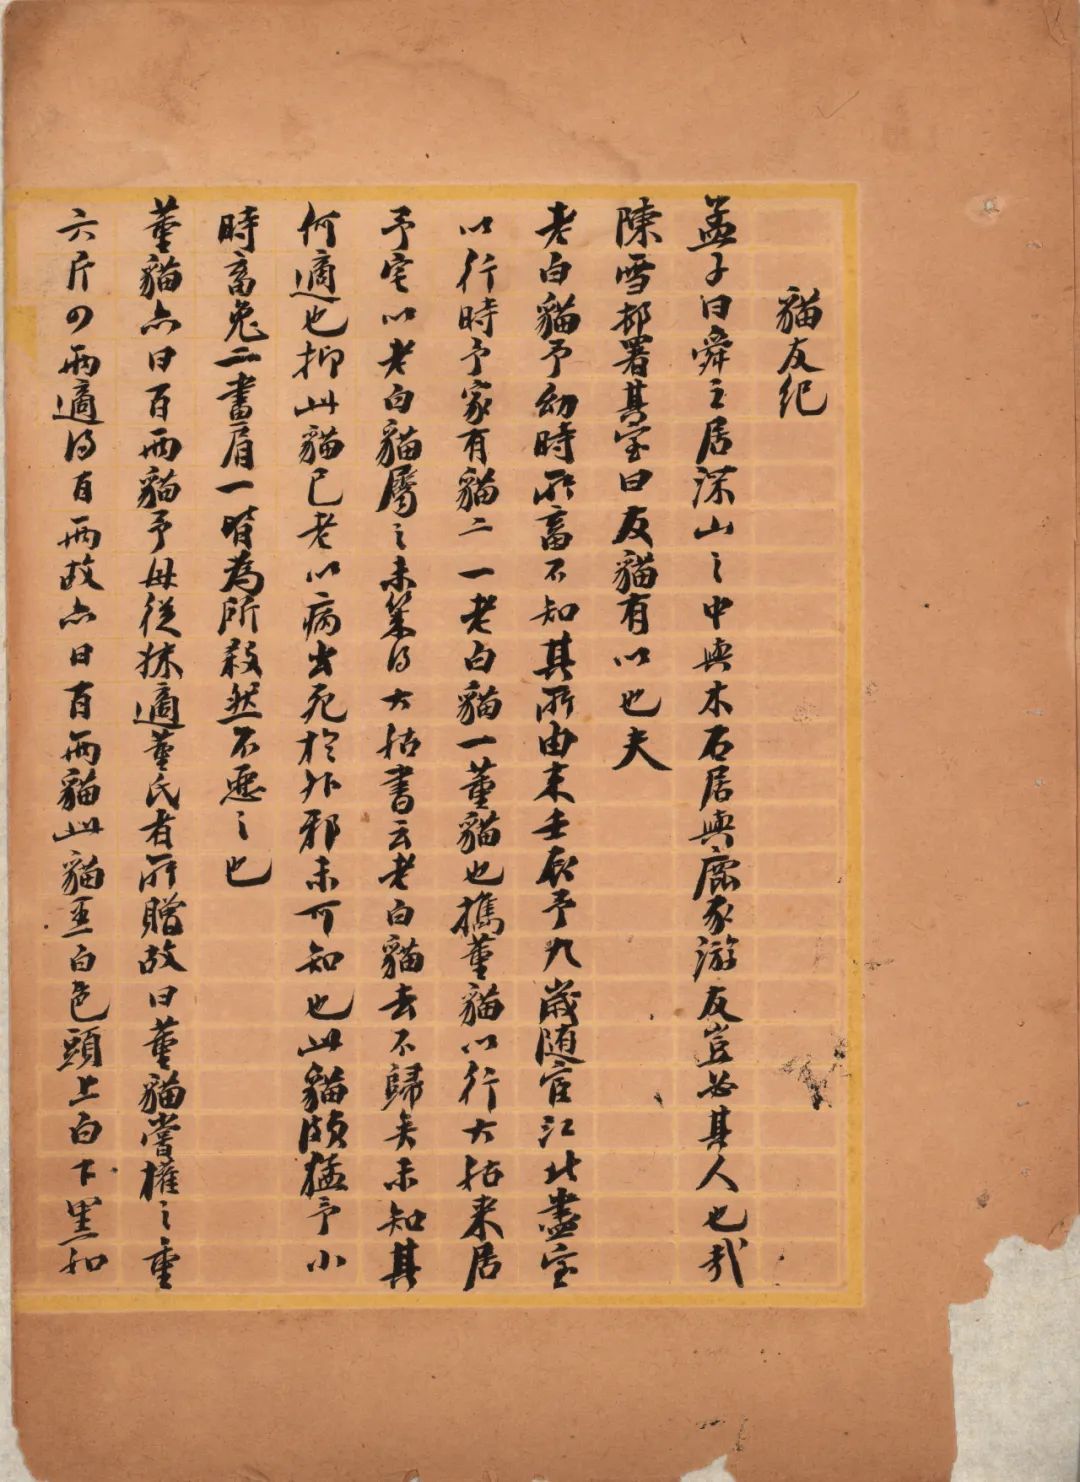 貓友紀
孟子曰舜之居深山之中與木石居與鹿豕游友豈必其人也哉
陳雪邨署其室曰友貓有以也夫
老白貓予幼時所畜不知其所由來壬辰予九歲隨宦江北盡室
以行時予家有貓二一老白貓一董貓也攜董貓以行大姑來居
予宅以老白貓屬之未幾得大姑書云老白貓去不歸矣未知其
何適也抑此貓已老以病出死於外邪未可知也此貓頗猛予小
時畜兔二畫眉一皆為所殺然不惡之也
董貓亦曰百兩貓予母從妹適董氏者所贈故曰董貓嘗權之重
六斤四兩適得百兩故亦曰百兩貓此貓白色頭上白下黑如